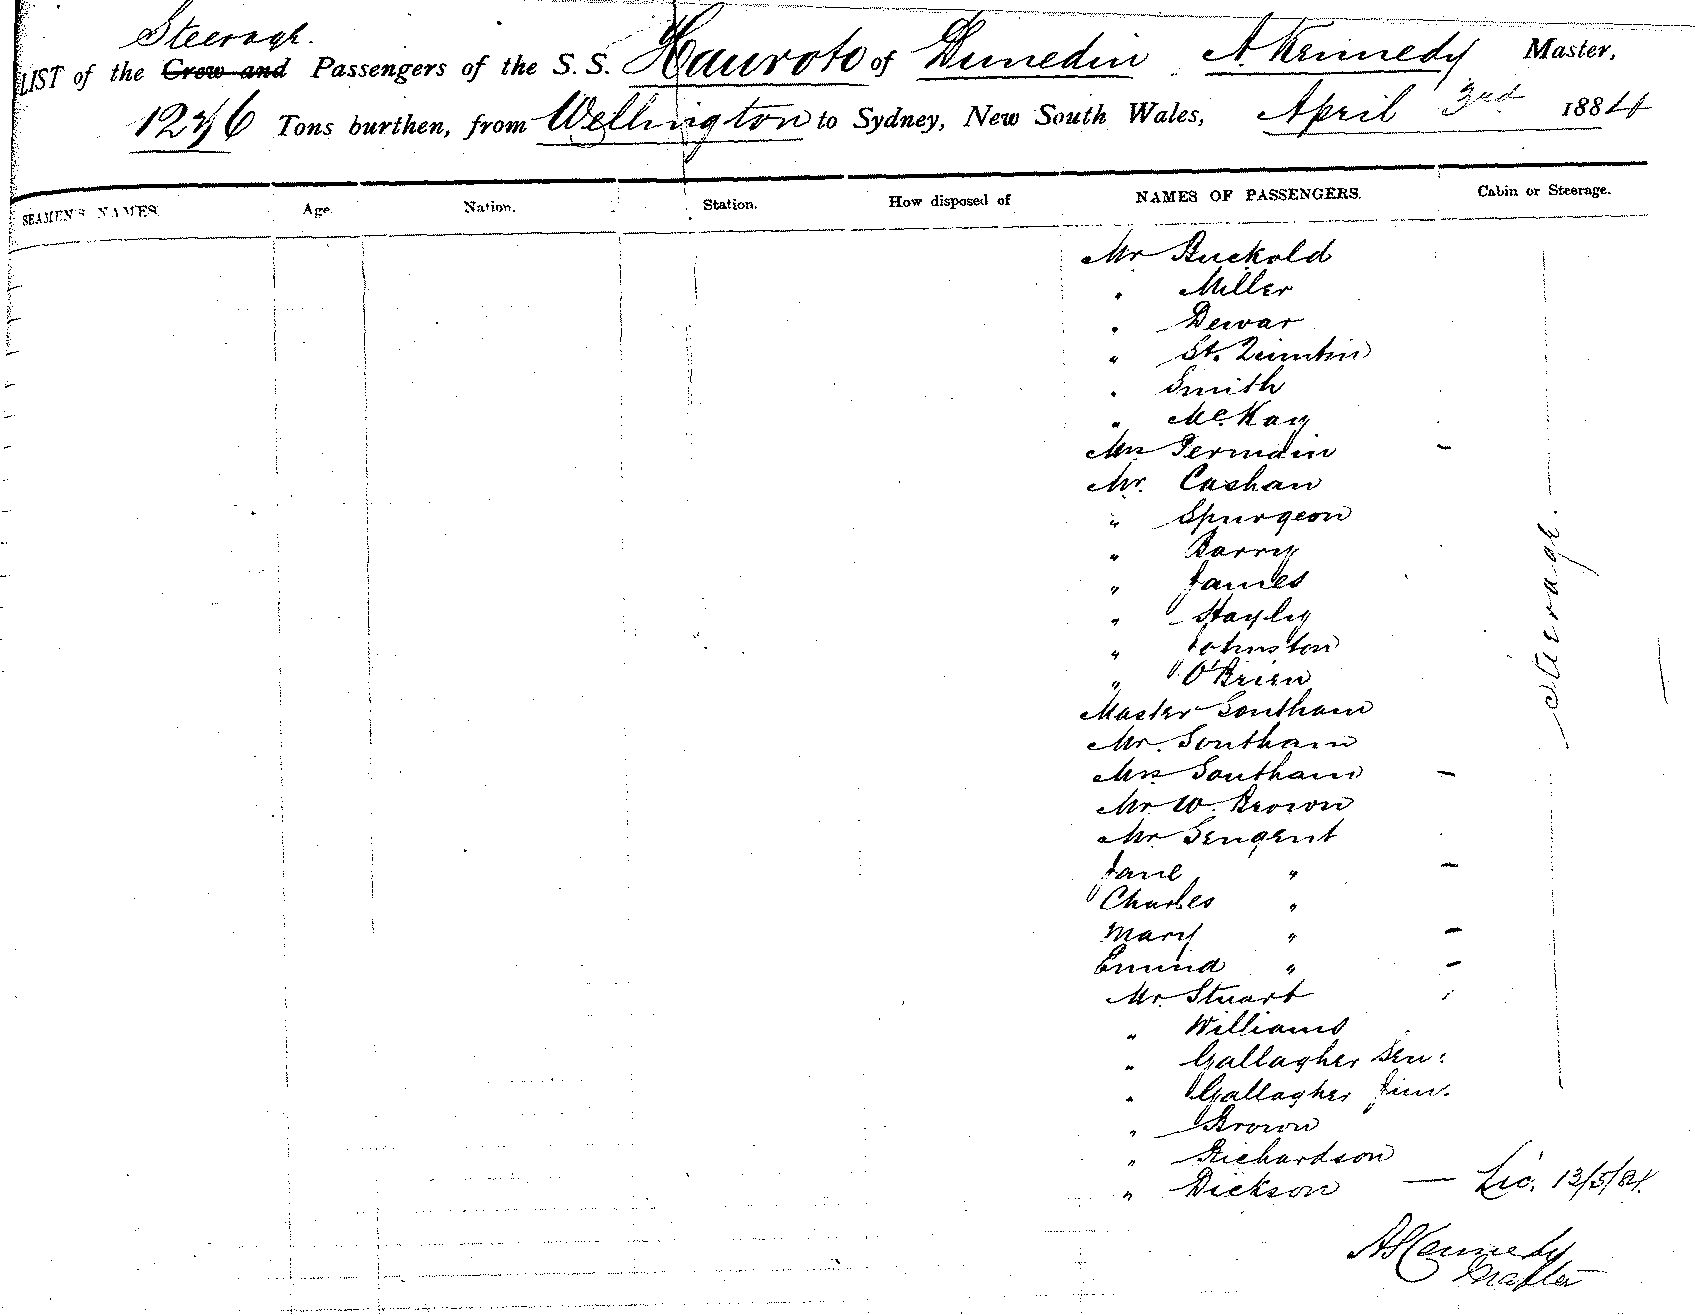 Steerage.
LIST of the Crew and Passengers of the S.S. Hauroto of Dunedin A. Kennedy Master,
1276 Tons burthen, from Wellington to Sydney, New South Wales, April 3rd 1884
SEAMEN'S NAMES Age Nation. Station. How disposed of NAMES OF PASSENGERS. Cabin or Steerage.
Mr Buckold
" Miller
" Dewar
" St. Quintin
" Smith
" McKay
Mrs Jermain -
Mr. Cashan
" Spurgeon
" Barry
" James
" Hayley
" Johnston
" O'Brien
Master Southam
Mr. Southam
Mrs Southam -
Mr W. Brown
Mr Sengent
Jane " -
Charles "
Mary " -
" -
Mr Stuart
" Williams
" Gallagher Sen:
" Gallagher Jun.
" Brown
" Richardson
" Dickson — 13/5/84.
Steerage.
A Kennedy
Master